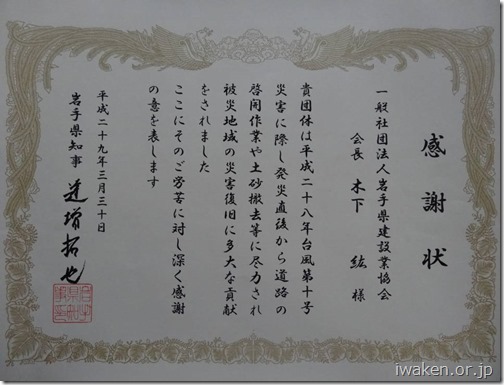 感謝状
一般社団法人岩手県建設業協会
会長 木下 紘 様
貴団体は平成二十八年台風第十号
災害に際し発災直後から道路の
啓開作業や土砂撤去等に尽力され
被災地域の災害復旧に多大な貢献
をされました
ここにそのご労苦に対し深く感謝
の意を表します
平成二十九年三月三十日
岩手県知事 達増拓也
iwaken.or.jp